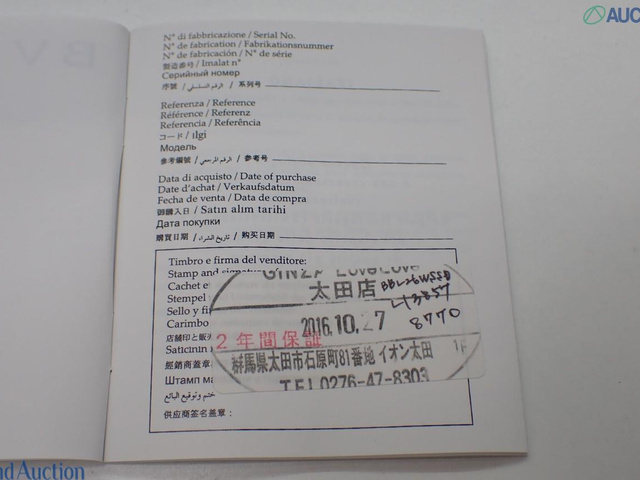 AUC
B V
N° di fabbricazione / Serial No.
N° de fabrication / Fabrikationsnummer
N° de fabricación / N° de série
製造番号 / Imalat n°
Серийный номер
序號 / الرقم التسلسلي / 系列号
Referenza / Reference
Référence / Referenz
Referencia / Referência
コード / ılgi
Модель
参考編號 / الرقم المرجعي / 参考号
Data di acquisto / Date of purchase
Date d'achat / Verkaufsdatum
Fecha de venta / Data de compra
御購入日 / Satın alım tarihi
Дата покупки
購買日期 / تاريخ الشراء / 购买日期
Timbro e firma del venditore:
Stamp and signatur
Cachet e
Stempel
Sello y fi
Carimbo
店舗印と販
Saticinin
經銷商蓋章
Штамп ма
ختم وتوقيع البائع
供应商签名盖章：
GINZA LoveLove
太田店
BBL26WSSD
L13857
8770
2016.10.27
2年間保証
群馬県太田市石原町81番地 イオン太田 1F
TEL0276-47-8303
nd Auction